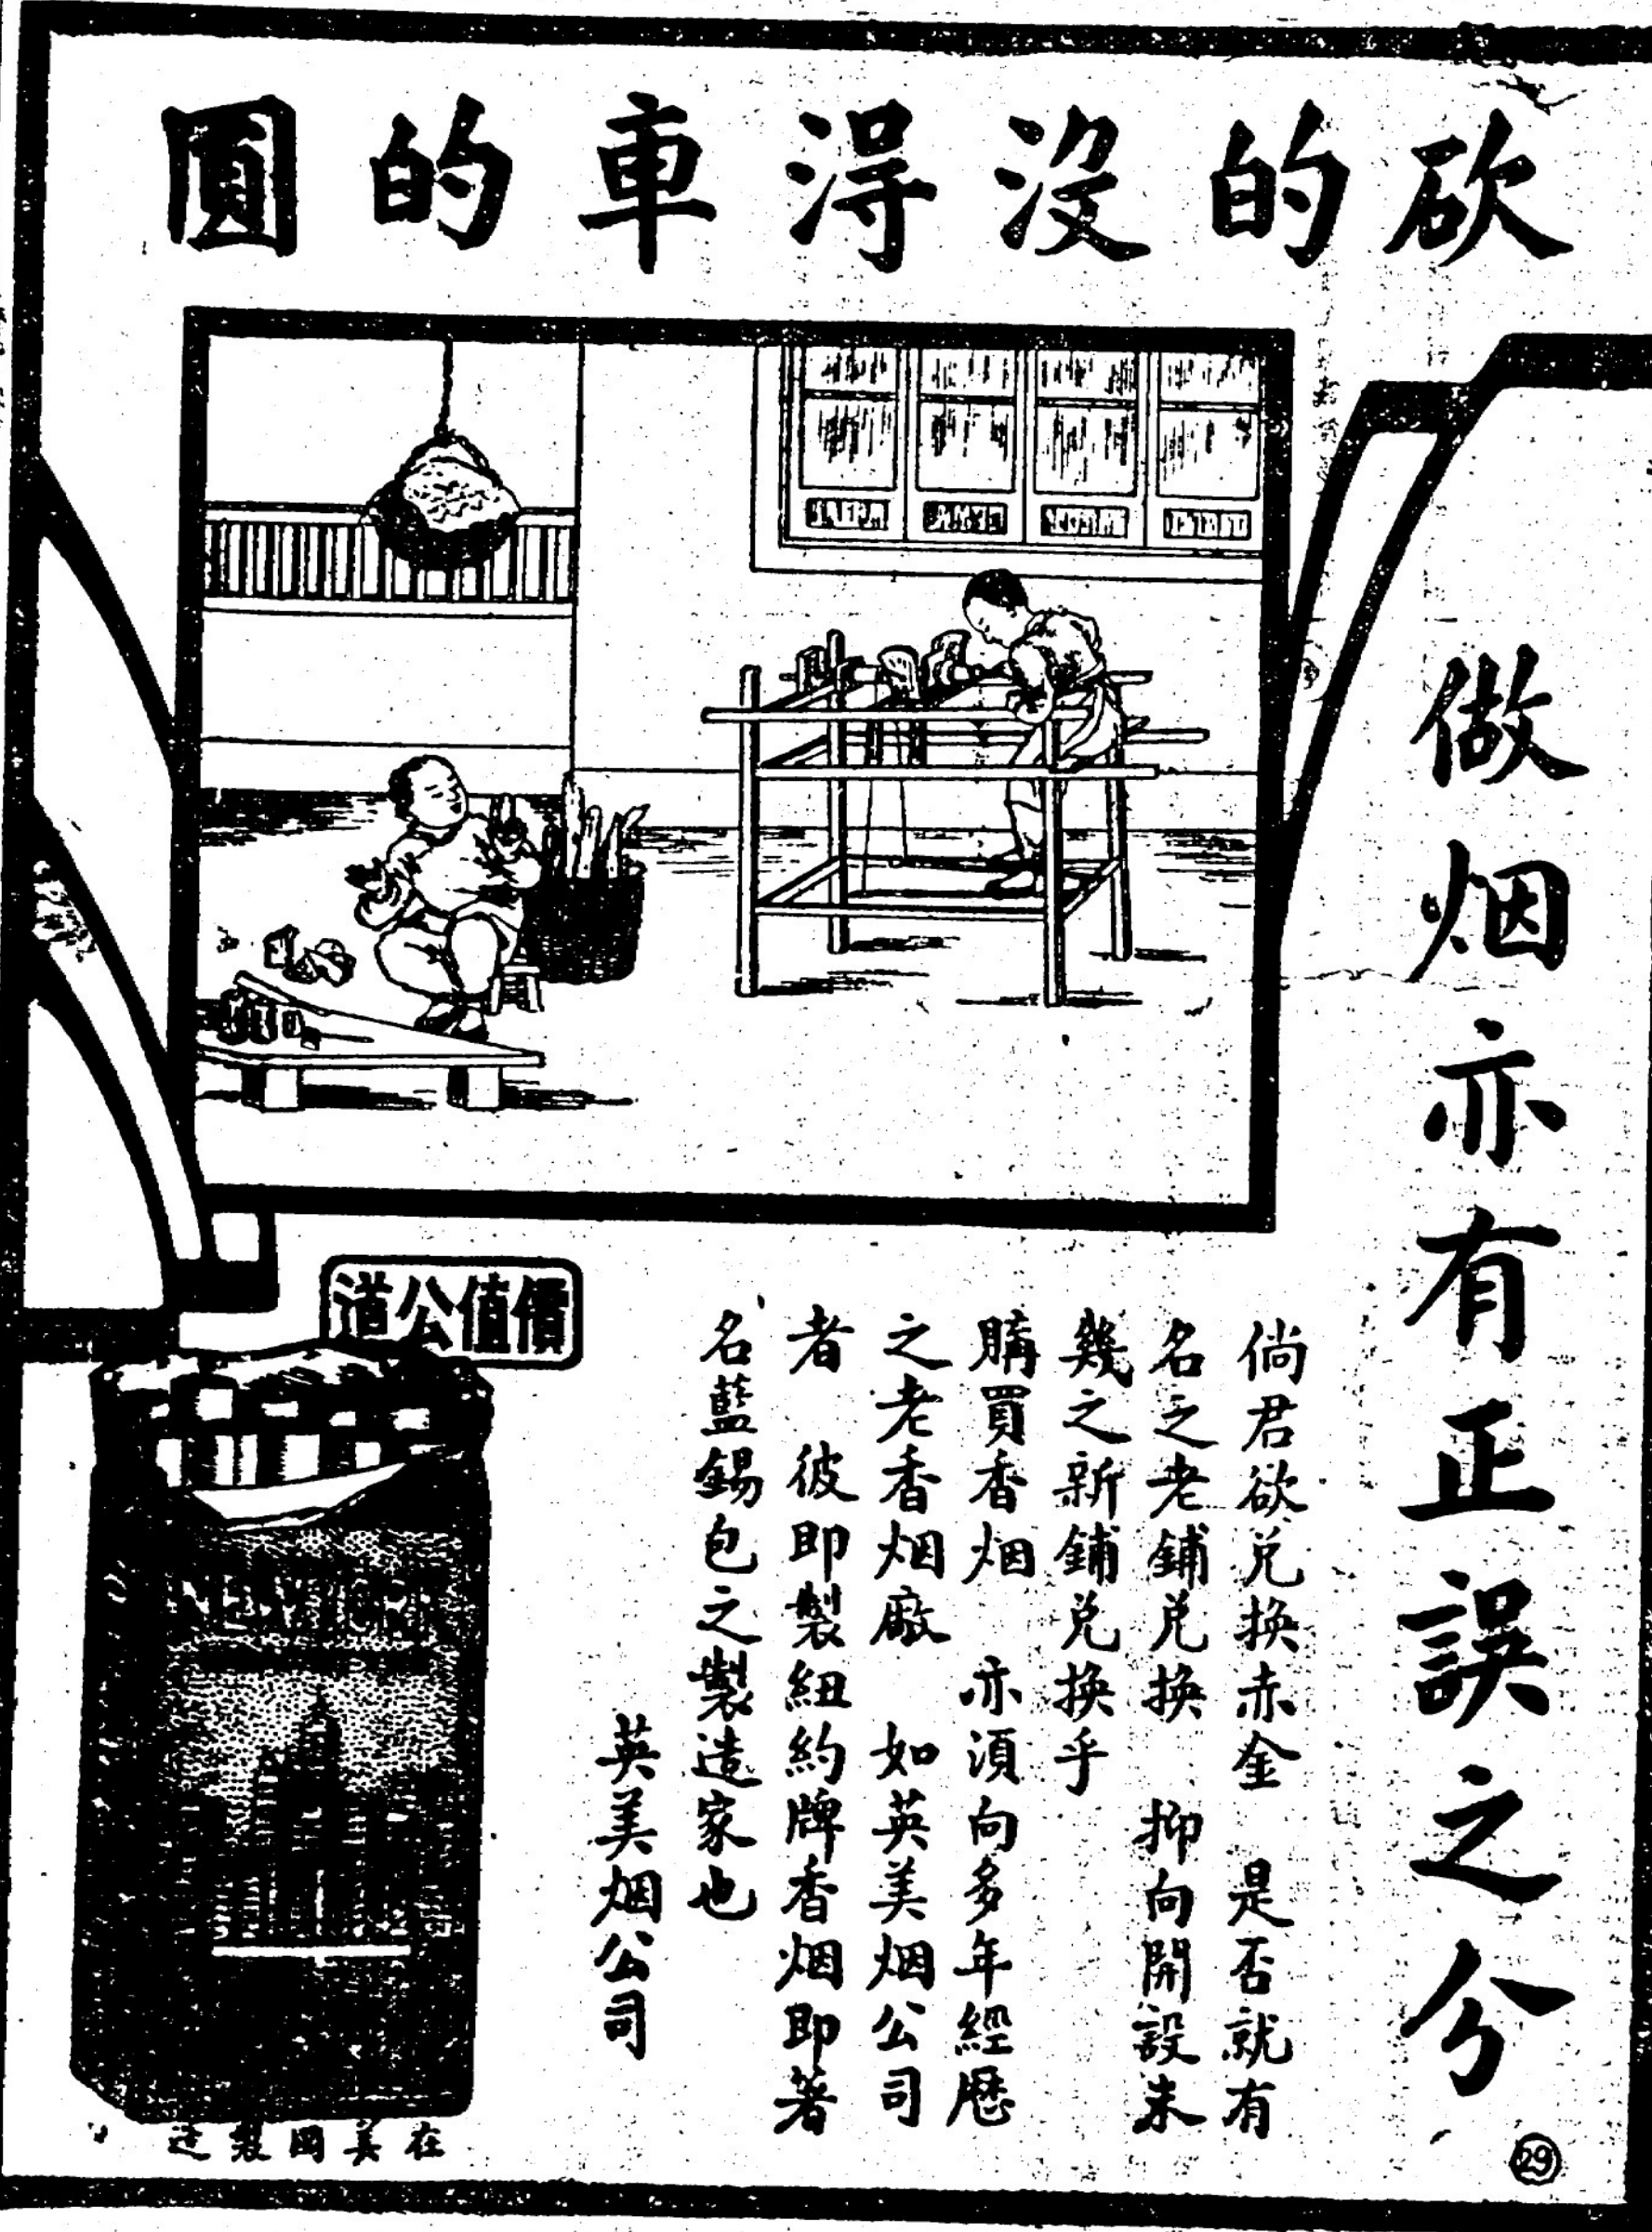 砍的没淂車的圓
做烟亦有正誤之分
倘君欲兑换赤金　是否就有
名之老鋪兑换　抑向開設未
幾之新鋪兑换乎
購買香烟　亦須向多年經歷
之老香烟廠　如英美烟公司
者　彼即製紐約牌香烟即著
名藍錫包之製造家也
英美烟公司
價值公道
NEW YORK
在美國製造
29